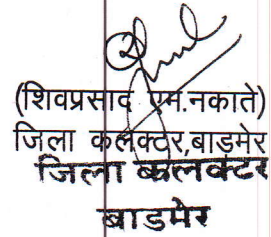 (शिवप्रसाद एम.नकाते)
जिला कलक्टर,बाडमेर
जिला कलक्टर
बाडमेर